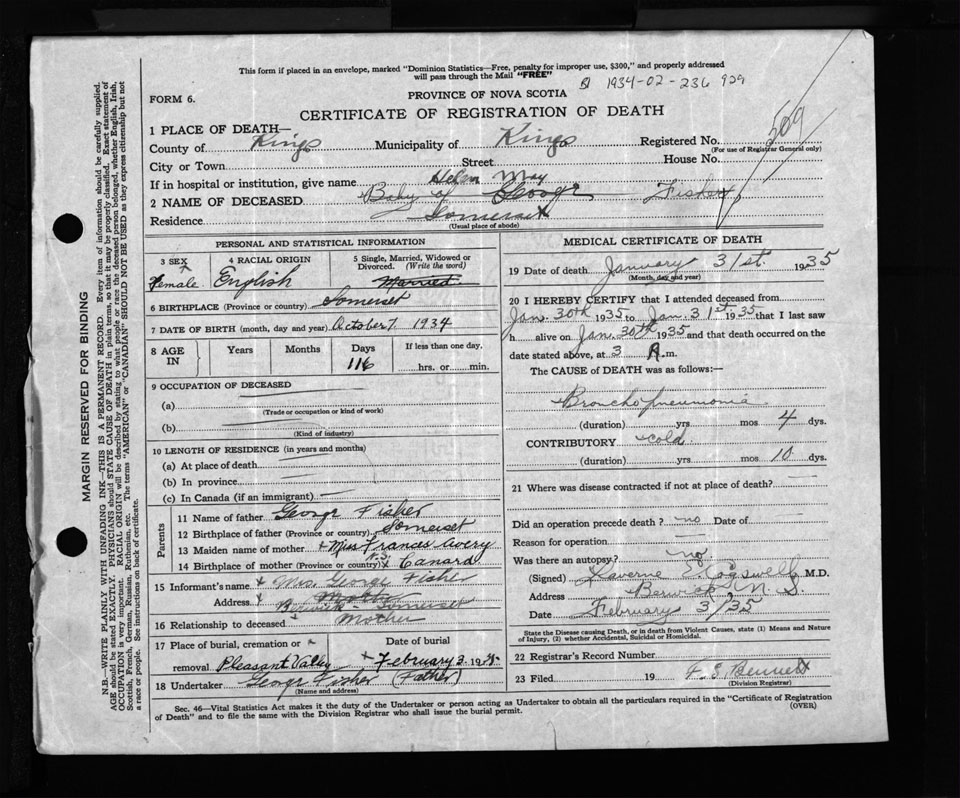 This form if placed in an envelope, marked "Dominion Statistics—Free, penalty for improper use, $300," and properly addressed
will pass through the Mail "FREE"
1934-02-236 929
PROVINCE OF NOVA SCOTIA
FORM 6.
CERTIFICATE OF REGISTRATION OF DEATH
509
1 PLACE OF DEATH—
County of Kings Municipality of Kings Registered No.
(For use of Registrar General only)
City or Town Street House No.
If in hospital or institution, give name Helen May
2 NAME OF DECEASED Baby of George Fisher
Residence Somerset
(Usual place of abode)
PERSONAL AND STATISTICAL INFORMATION
3 SEX 4 RACIAL ORIGIN 5 Single, Married, Widowed or Divorced. (Write the word)
Female English Married
6 BIRTHPLACE (Province or country) Somerset
7 DATE OF BIRTH (month, day and year) October 7 1934
8 AGE IN Years Months Days If less than one day.
116 hrs. or min.
9 OCCUPATION OF DECEASED
(a)
(Trade or occupation or kind of work)
(b)
(Kind of industry)
10 LENGTH OF RESIDENCE (in years and months)
(a) At place of death
(b) In province
(c) In Canada (if an immigrant)
Parents
11 Name of father George Fisher
12 Birthplace of father (Province or country) Somerset
13 Maiden name of mother Miss Frances Avery
14 Birthplace of mother (Province or country) Canard
15 Informant's name Mrs. George Fisher
Mother
Address Berwick - Somerset
16 Relationship to deceased Mother
17 Place of burial, cremation or Date of burial
removal Pleasant Valley February 2. 19
18 Undertaker George Fisher (Father)
(Name and address)
MEDICAL CERTIFICATE OF DEATH
19 Date of death January 31st. 1935
(Month, day and year)
20 I HEREBY CERTIFY that I attended deceased from
Jan. 30th 1935 to Jan. 31st 1935 that I last saw
h alive on Jan. 30th 1935 and that death occurred on the
date stated above, at 3 A.m.
The CAUSE of DEATH was as follows:—
Broncho pneumonia
(duration) yrs mos 4 dys.
CONTRIBUTORY cold
(duration) yrs mos 10 dys.
21 Where was disease contracted if not at place of death?
Did an operation precede death? no Date of
Reason for operation
Was there an autopsy? no
(Signed) Laverne E. Cogswell M.D.
Address Berwick, N. S.
Date February 3/35
State the Disease causing Death, or in death from Violent Causes, state (1) Means and Nature
of Injury, (2) whether Accidental, Suicidal or Homicidal.
22 Registrar's Record Number
23 Filed 19 Bennett
(Division Registrar)
Sec. 46—Vital Statistics Act makes it the duty of the Undertaker or person acting as Undertaker to obtain all the particulars required in the "Certificate of Registration
of Death" and to file the same with the Division Registrar who shall issue the burial permit.
(OVER)
MARGIN RESERVED FOR BINDING
N.B.—WRITE PLAINLY WITH UNFADING INK—THIS IS A PERMANENT RECORD. Every item of information should be carefully supplied.
AGE should be stated EXACTLY. PHYSICIANS should STATE CAUSE OF DEATH in plain terms, so that it may be properly classified. Exact statement of
OCCUPATION is very important. RACIAL ORIGIN will be described by stating to what people or race the deceased person belonged, whether English, Irish,
Scottish, French, German, Russian, Ruthenian, etc. The terms "AMERICAN" or "CANADIAN" SHOULD NOT BE USED as they express citizenship but not
a race or people. See instructions on back of certificate.